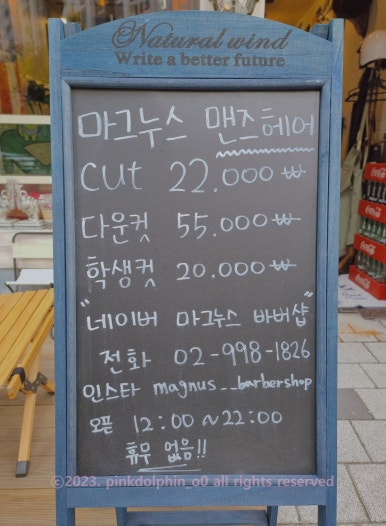 Natural wind
Write a better future
마그누스 맨즈헤어
cut 22.000 ₩
다운컷 55.000 ₩
학생컷 20.000 ₩
"네이버 마그누스 바버샵"
전화 02-998-1826
인스타 magnus__barbershop
오픈 12:00~22:00
휴무 없음!!
©2023. pinkdolphin_o0 all rights reserved